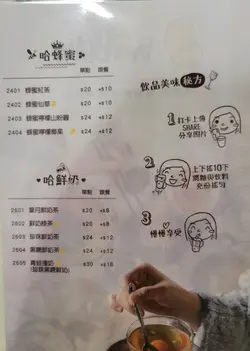 哈蜂蜜
單點 跟餐
2401 蜂蜜紅茶 $20 +$10
2402 蜂蜜仙草 $20 +$10
2403 蜂蜜檸檬山粉圓 $24 +$12
2404 蜂蜜檸檬椰果 $24 +$12
哈鮮奶
單點 跟餐
2601 鮮奶茶 $20 +$8
2602 鮮奶綠茶 $20 +$8
2603 珍珠鮮奶茶 $24 +$12
2604 黑糖鮮奶茶 $24 +$12
2605 青蛙撞奶 $30 +$18
(珍珠黑糖鮮奶)
飲品美味秘方
1 打卡上傳
SHARE
分享圖片
2 上下搖10下
讓糖與飲料
充份搖勻
3 慢慢享受